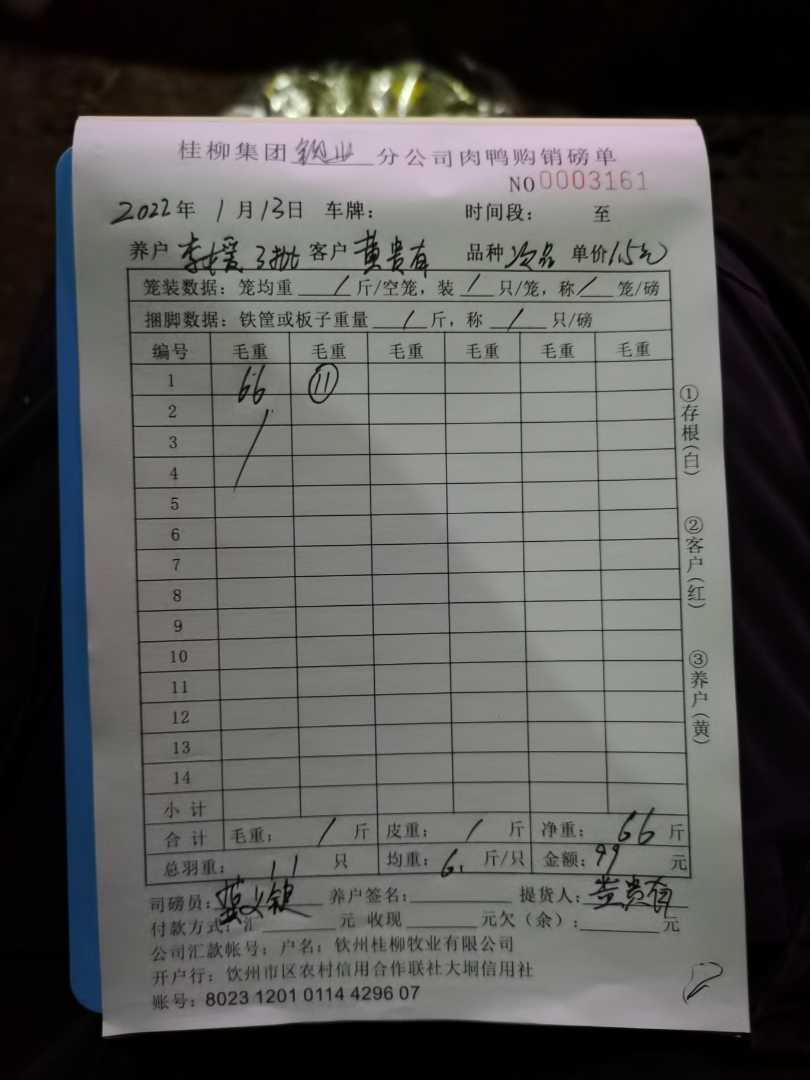 桂柳集团钦州分公司肉鸭购销磅单
NO 0003161
2022年1月13日 车牌： 时间段： 至
养户 李 3批 客户 黄贵有 品种 次品 单价 1.5元
笼装数据：笼均重 / 斤/空笼，装 / 只/笼，称 / 笼/磅
捆脚数据：铁筐或板子重量 / 斤，称 / 只/磅
编号 毛重 毛重 毛重 毛重 毛重 毛重
1 66 ⑪
2
3
4
5
6
7
8
9
10
11
12
13
14
小计
合计 毛重： / 斤 皮重： / 斤 净重： 66 斤
总羽重： 11 只 均重： 6. 斤/只 金额： 99 元
司磅员： 养户签名： 提货人： 黄贵有
付款方式：汇 元 收现 元欠（余）： 元
公司汇款帐号：户名：钦州桂柳牧业有限公司
开户行：饮州市区农村信用合作联社大垌信用社
账号：8023 1201 0114 4296 07
①存根（白）
②客户（红）
③养户（黄）